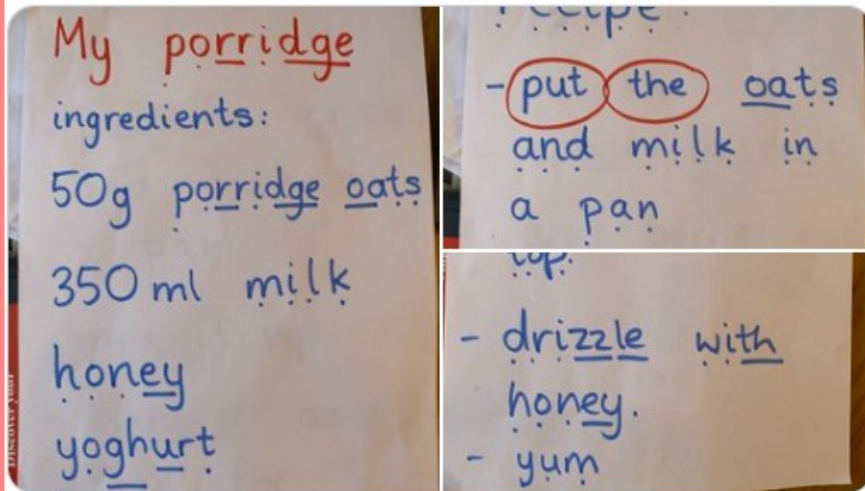 My porridge
ingredients:
50g porridge oats
350 ml milk
honey
yoghurt
recipe:
- put the oats
and milk in
a pan
top.
- drizzle with
honey.
- yum
Discover your